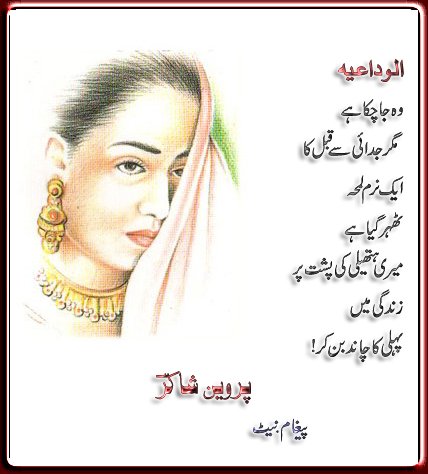 الوداعیہ
وہ جا چکا ہے
مگر جدائی سے قبل کا
ایک نرم لمحہ
ٹھہر گیا ہے
میری ہتھیلی کی پشت پر
زندگی میں
پہلی کا چاند بن کر!
پروین شاکر
پیغام نیٹ